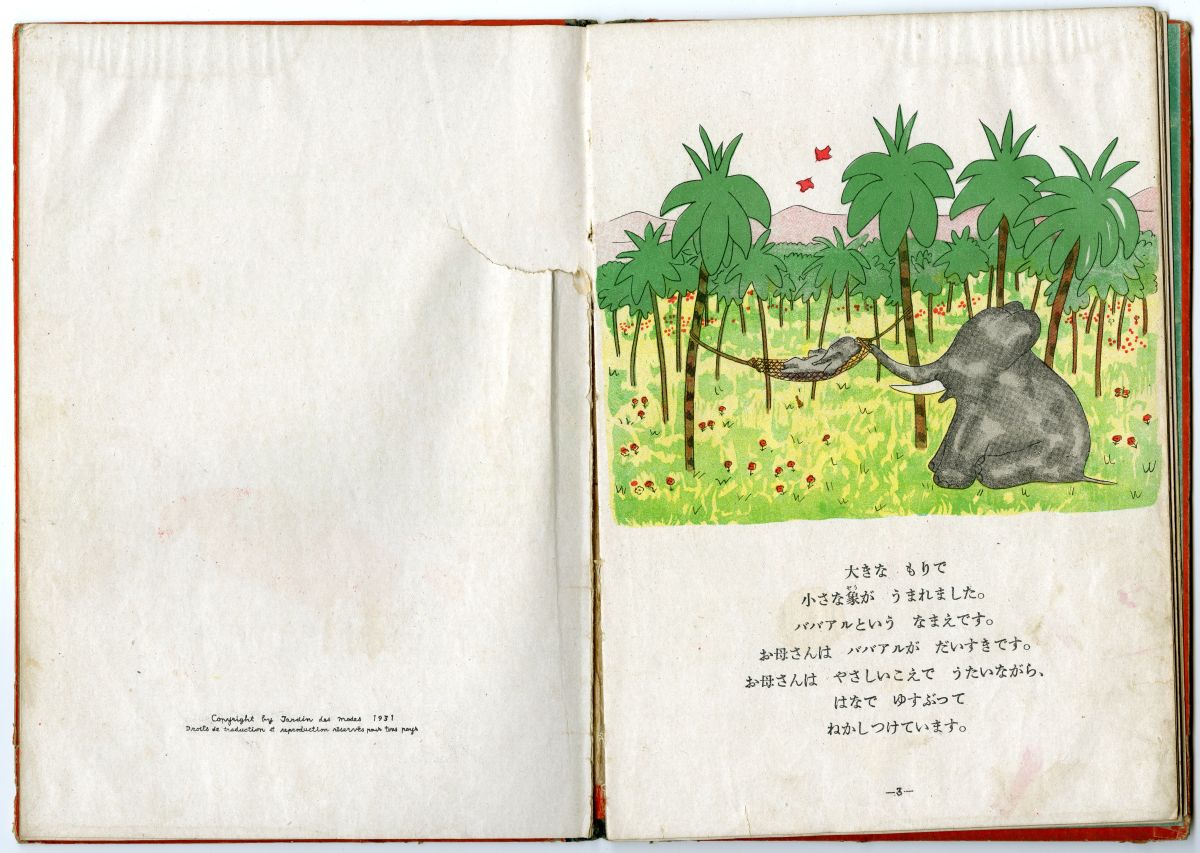 Copyright by Jardin des Modes 1931
Droits de traduction et reproduction réservés pour tous pays
大きな　もりで
小さな象が　うまれました。
ババアルという　なまえです。
お母さんは　ババアルが　だいすきです。
お母さんは　やさしいこえで　うたいながら、
はなで　ゆすぶって
ねかしつけています。
—3—